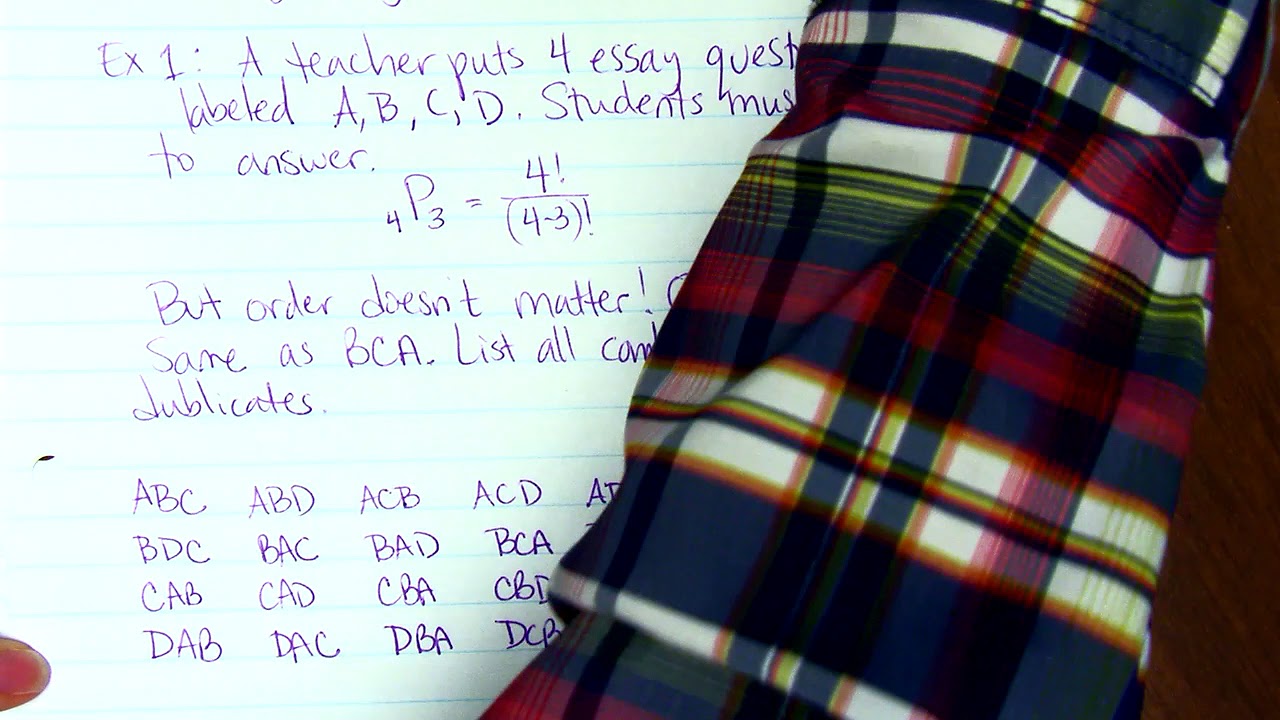 Ex 1: A teacher puts 4 essay
labeled A, B, C, D. Students
to answer.
4P3 = 4!/(4-3)!
But order doesn't matter!
Same as BCA. List all
dublicates.
ABC ABD ACB ACD
BDC BAC BAD BCA
CAB CAD CBA CBD
DAB DAC DBA DCB